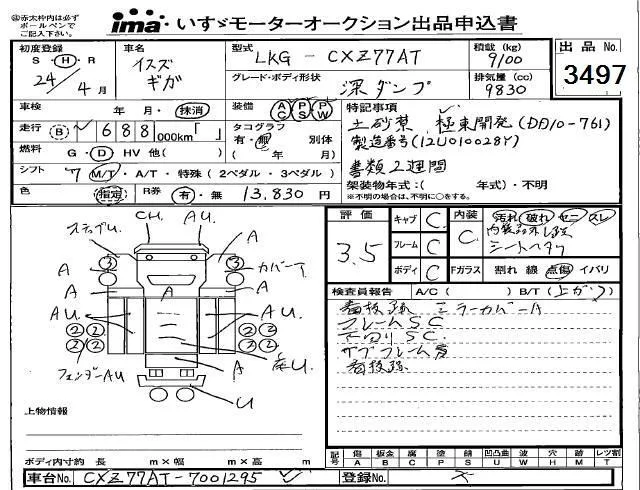 ㊟赤太枠内は必ず
ボールペンで
ご記入下さい。
ima いすゞモーターオークション出品申込書
初度登録
S・H・R
24/4月
車名
イスズ
ギガ
型式
LKG-CXZ77AT
グレード・ボディ形状
深ダンプ
積載(kg)
9100
排気量(cc)
9830
出品No.
3497
車検 年 月・抹消
装備 AC PS PW
走行 B 688 000km「 」
タコグラフ
有・無 別体
( 年 月)
燃料 G・D HV 他( )
シフト 7 M/T・A/T・特殊(2ペダル・3ペダル)
色 指定 R券 有・無 13,830円
特記事項
土砂禁 極東開発(DD10-761)
製造番号(12U010028Y)
書類2週間
架装物年式:( 年式)・不明
※不明の場合は、不明に○をする。
ステップU. CH. AU.
A ③ ③ A
カバーT
A A A
AU AU
② ② ② ②
② ② ② ②
フェンダーAU
A U.
U
上物情報
ボディ内寸約 長 m×幅 m×高 m
評価
3.5
キャブ C
フレーム C
ボディ C
内装 C
汚れ 破れ セニ スレ
シートヘタリ
Fガラス 割れ 線 点傷 イバリ
検査員報告 A/C( ) B/T(上がり)
看板跡 ミラーカバーA
フレームSC
SC
サブフレーム
看板跡
記号
傷 A 板金 B 腐 C 塗 P 錆 S 凹凸曲 U 波 W 穴 H 跡 M レツ割 T
車台No. CXZ77AT-7001295
登録No.